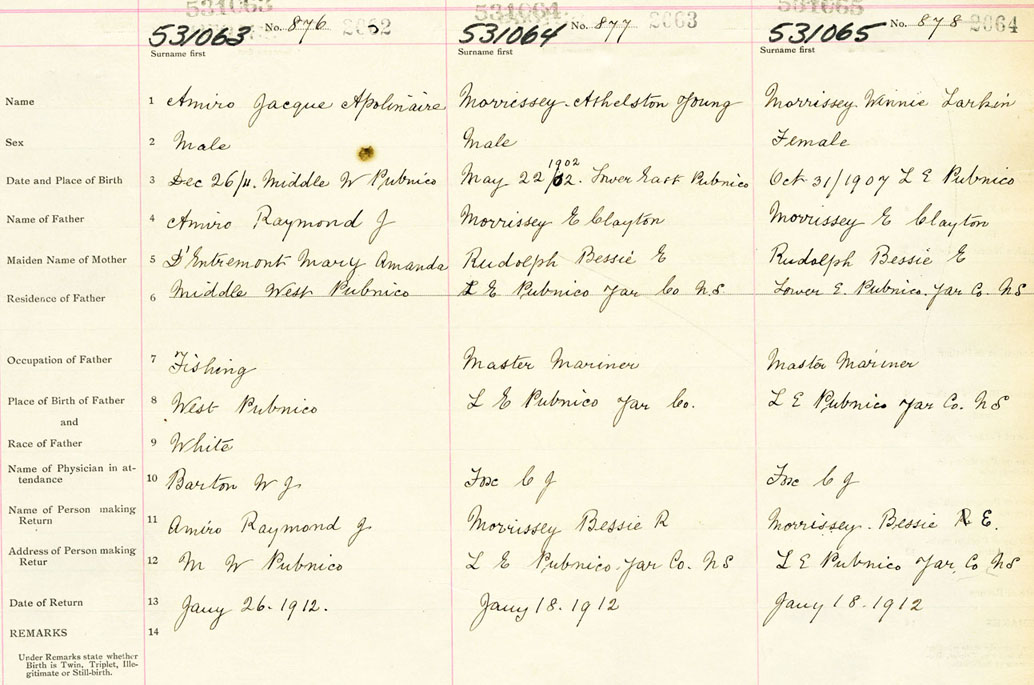 531063 531064 531065
531063 No. 876 2662 531064 No. 877 2663 531065 No. 878 2664
Surname first Surname first Surname first
Name 1 Amiro Jacque Apolinaire Morrissey Athelston Young Morrissey Winnie Larkin
Sex 2 Male Male Female
Date and Place of Birth 3 Dec 26/11. Middle W Pubnico May 22/02. 1902 Lower East Pubnico Oct 31/1907 L E Pubnico
Name of Father 4 Amiro Raymond J Morrissey E Clayton Morrissey E Clayton
Maiden Name of Mother 5 D'Entremont Mary Amanda Rudolph Bessie E Rudolph Bessie E
Residence of Father 6 Middle West Pubnico L E Pubnico Yar Co N.S Lower E. Pubnico. Yar Co. NS
Occupation of Father 7 Fishing Master Mariner Master Mariner
Place of Birth of Father 8 West Pubnico L E Pubnico Yar Co. L E Pubnico Yar Co. NS
and
Race of Father 9 White
Name of Physician in at-
tendance 10 Barton W J. Fox C J Fox C J
Name of Person making
Return 11 Amiro Raymond J. Morrissey Bessie R Morrissey. Bessie E.
Address of Person making
Retur 12 M W Pubnico L E Pubnico. Yar Co. NS L E Pubnico Yar. Co NS
Date of Return 13 Jany 26. 1912. Jany 18. 1912 Jany 18. 1912
REMARKS 14
Under Remarks state whether
Birth is Twin, Triplet, Ille-
gitimate or Still-birth.